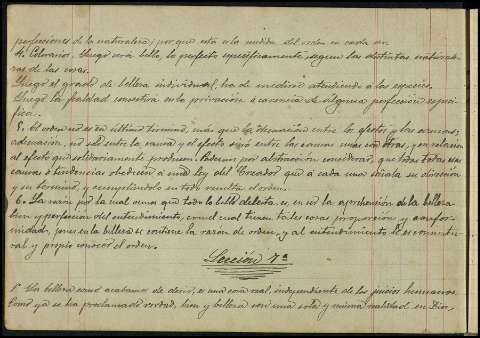 perfecciones de la naturaleza; por que esta a la medida del orden en cada ser.
4. Colorario. Luego será bello, lo perfecto específicamente, segun las distintas naturale-
zas de las cosas.
Luego el grado de belleza individual, ha de medirse atendiendo a las especies.
Luego la fealdad consistirá en la privación o carencia de alguna perfección especí-
fica.
5. El orden no es en último término, mas que la adecuación entre los efectos y las causas;
adecuación, no solo entre la causa y el efecto sinó entre las causas unas con otras, y en relación
al efecto que solidariamente producen. Podemos por abstracción considerar, que todas esas
causas o tendencias obedecen á una ley del Creador que á cada una señala su dirección
y su término, y cumpliendolo en todo resulta el orden.
6. La razón por la cual ama que todo lo bello deleita es, en sed la aprobación de la belleza
bien y perfección del entendimiento, con el cual tienen tales cosas proporción y confor-
midad, pues en la belleza se contiene la razón de orden, y al entendimiento le es connatu-
ral y propio conocer el orden.
Sección 7ª
1º La belleza como acabamos de decir, es una cosa real, independiente de los juicios humanos
Como ya se ha proclamado verdad, bien y belleza son una sola y misma realidad en Dios,